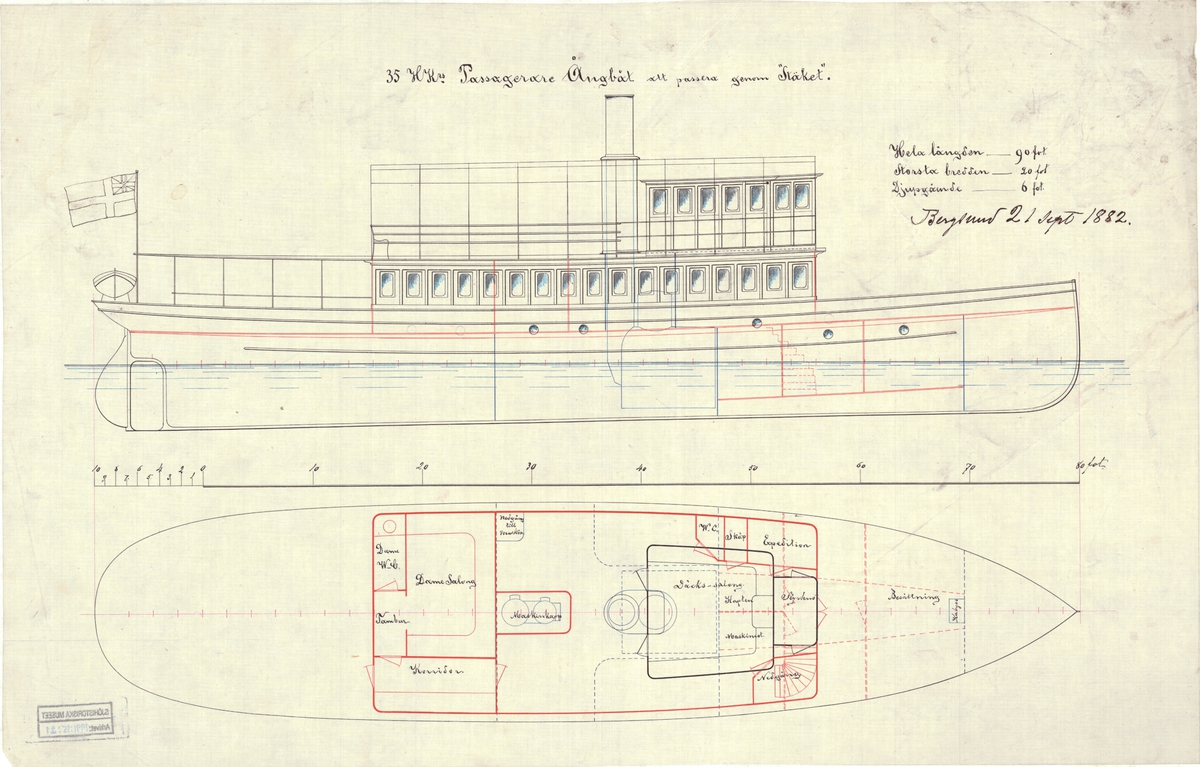 35 HKrs Passagerare Ångbåt att passera genom "Stäket".
Hela längden — 90 fot
Största bredden — 20 fot
Djupgående — 6 fot
Berglund 21 Sept 1882.
10 9 8 7 6 5 4 3 2 1 0 10 20 30 40 50 60 70 80 fot.
Nedgång till maskin
W.C.
Skåp
Expedition
Dame W.C.
Dame Salong
Däcks-salong
Kapten
Styrhus
Besättning
Tambur
Maskinkapp
Maskinist
Korridor
Nedgång
SJÖHISTORISKA MUSEET